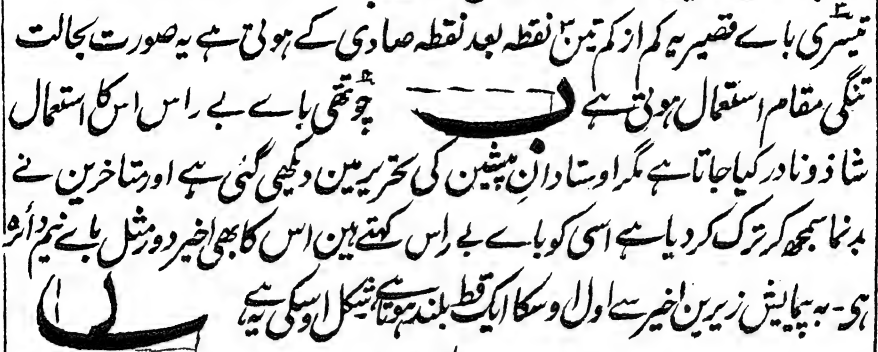 تیسری باے قصیر یہ کم از کم تین نقطہ بعد نقطہ صادی کے ہوتی ہے یہ صورت بحالت
تنگی مقام استعمال ہوتی ہے چوتھی باے بے راس اس کا استعمال
شاذ و نادر کیا جاتا ہے مگر اوستادانِ پیشین کی تحریر مین دیکھی گئی ہے اور متاخرین نے
بدنما سمجھ کر ترک کر دیا ہے اسی کو باے بے راس کہتے ہین اس کا بھی اخیر دور مثل باے نیم دائرہ
ہی ۔ بہ پیمایش زیرین اخیر سے اول اوسکا ایک قط بلند ہوتا ہے شکل اوسکی یہ ہے